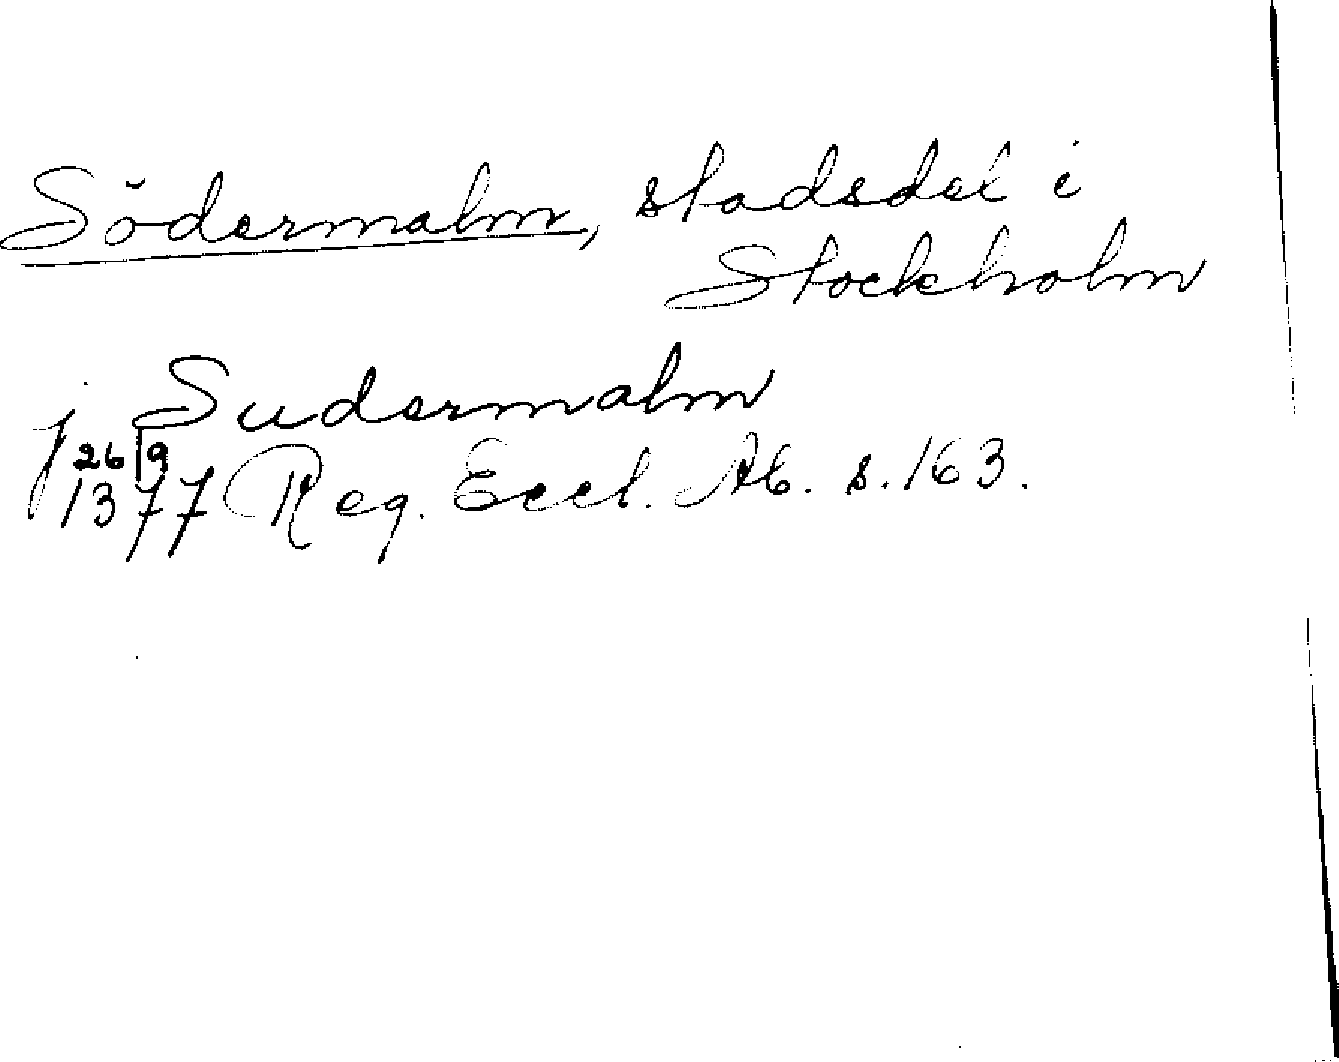 Södermalm, stadsdel i
Stockholm
j Sudermalm
26/9 1377 Reg. Eccl. Ab. s. 163.